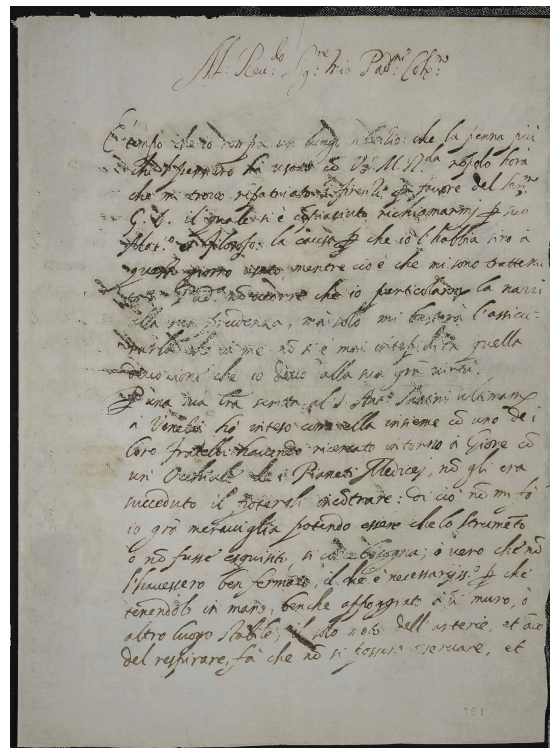 M. Reu.do Sig.re mio Pad.ne Col.mo
È tempo che io rompa un lungo silenzio, che la penna più
che il pensiero ha usato cõ V. S. M. R.da rõpolo hora
che mi trovo ripatriato in Firenze p favore del Ser.mo
G. D. il quale si è cõpiaciuto richiamarmi p suo
Filosofo: la causa p che io l'habbia sino à
questo giorno usato, mentre cioè che mi sono trattenu
nõ occorre che io particolarm.e la narri
alla sua prudenza, ma solo mi basterà l'assicu-
rarla che in me nõ si è mai intepidita quella
devozione che io devo alla sua grã virtù.
P una sua lra scritta al S. Ant.o Santini ultimam.e
à Venezia hò inteso come ella insieme cõ uno de i
loro fratelli havendo ricercato intorno à Giove cõ
un Occhiale de i Pianeti Medicei, nõ gli era
succeduto il potergli incõtrare: di ciò nõ mi fò
io grã meraviglia potendo essere che lo strumẽto
o nõ fusse esquisito, si come bisogna; ò vero che nõ
l'havessero ben fermato, il che è necessariiss.o p che
tenendolo in mano, benche appoggiato à ũ muro, ò
altro luogo stabile, il solo moto dell'arterie, et ãco
del respirare, fà che nõ si possono osservare, et